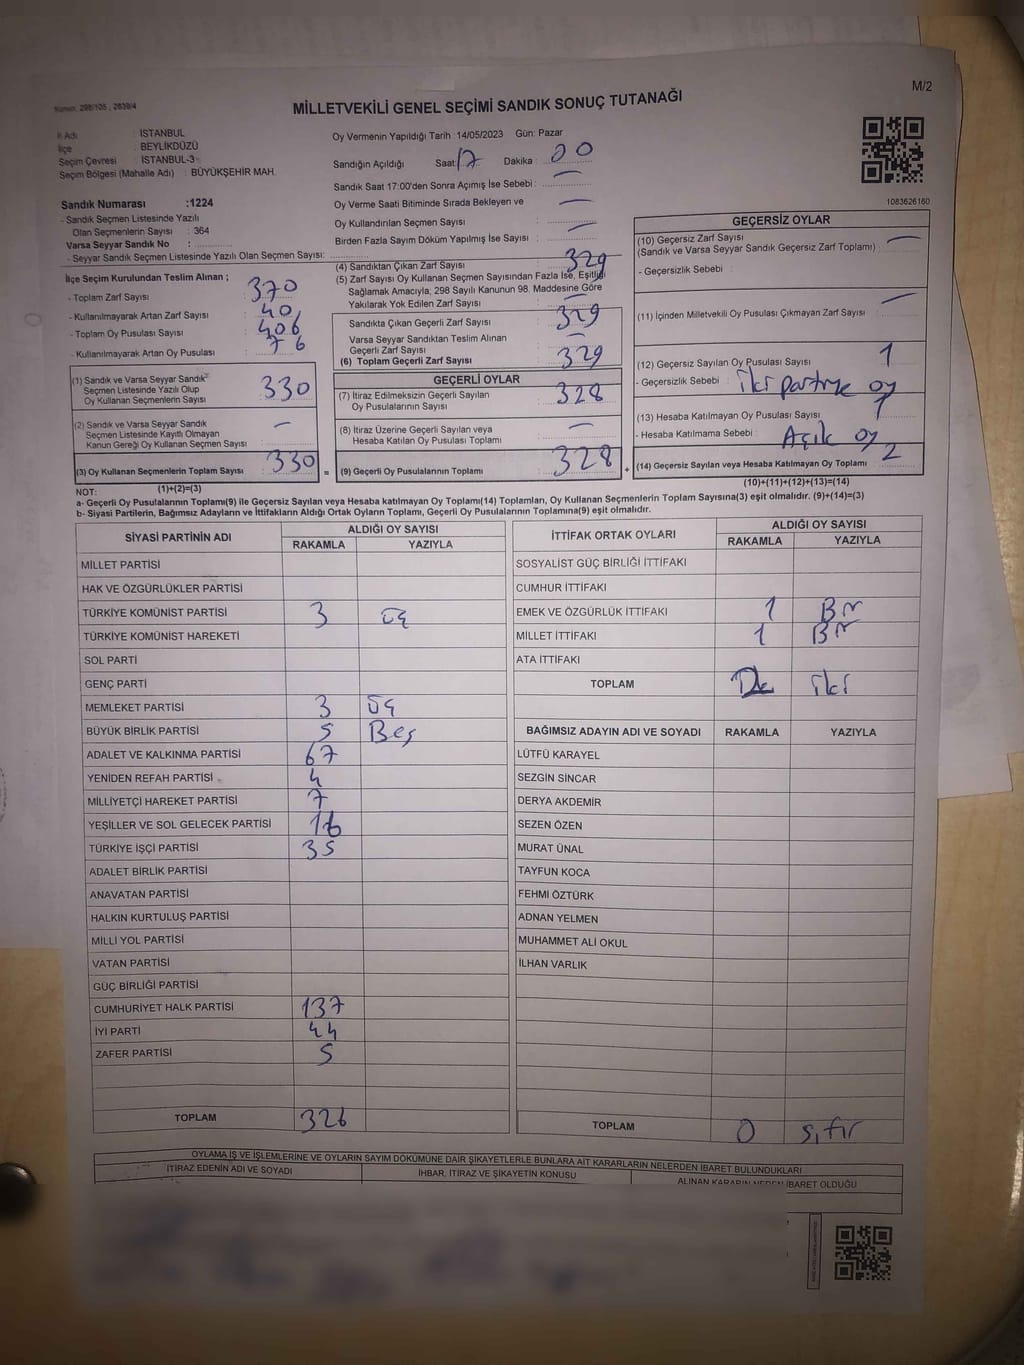 Kanun: 298/105 , 2839/4
M/2
MİLLETVEKİLİ GENEL SEÇİMİ SANDIK SONUÇ TUTANAĞI
İl Adı : İSTANBUL
İlçe : BEYLİKDÜZÜ
Seçim Çevresi : İSTANBUL-3
Seçim Bölgesi (Mahalle Adı) : BÜYÜKŞEHİR MAH.
Oy Vermenin Yapıldığı Tarih :14/05/2023 Gün: Pazar
Sandığın Açıldığı Saat: 17 Dakika : 00
Sandık Saat 17:00'den Sonra Açımış İse Sebebi : —
Oy Verme Saati Bitiminde Sırada Bekleyen ve
Oy Kullandırılan Seçmen Sayısı : —
Birden Fazla Sayım Döküm Yapılmış İse Sayısı : —
1083626160
Sandık Numarası :1224
- Sandık Seçmen Listesinde Yazılı
Olan Seçmenlerin Sayısı : 364
Varsa Seyyar Sandık No :
- Seyyar Sandık Seçmen Listesinde Yazılı Olan Seçmen Sayısı:
İlçe Seçim Kurulundan Teslim Alınan ;
- Toplam Zarf Sayısı : 370
- Kullanılmayarak Artan Zarf Sayısı : 40
- Toplam Oy Pusulası Sayısı : 406
- Kullanılmayarak Artan Oy Pusulası : 76
(1) Sandık ve Varsa Seyyar Sandık
Seçmen Listesinde Yazılı Olup
Oy Kullanan Seçmenlerin Sayısı : 330
(2) Sandık ve Varsa Seyyar Sandık
Seçmen Listesinde Kayıtlı Olmayan
Kanun Gereği Oy Kullanan Seçmen Sayısı : —
(3) Oy Kullanan Seçmenlerin Toplam Sayısı : 330
(1)+(2)=(3)
(4) Sandıktan Çıkan Zarf Sayısı : 329
(5) Zarf Sayısı Oy Kullanan Seçmen Sayısından Fazla İse, Eşitliği
Sağlamak Amacıyla; 298 Sayılı Kanunun 98. Maddesine Göre
Yakılarak Yok Edilen Zarf Sayısı : —
Sandıkta Çıkan Geçerli Zarf Sayısı : 329
Varsa Seyyar Sandıktan Teslim Alınan
Geçerli Zarf Sayısı : —
(6) Toplam Geçerli Zarf Sayısı : 329
GEÇERLİ OYLAR
(7) İtiraz Edilmeksizin Geçerli Sayılan
Oy Pusulalarının Sayısı : 328
(8) İtiraz Üzerine Geçerli Sayılan veya
Hesaba Katılan Oy Pusulası Toplamı : —
= (9) Geçerli Oy Pusulalarının Toplamı : 328 +
GEÇERSİZ OYLAR
(10) Geçersiz Zarf Sayısı
(Sandık ve Varsa Seyyar Sandık Geçersiz Zarf Toplamı) : —
- Geçersizlik Sebebi :
(11) İçinden Milletvekili Oy Pusulası Çıkmayan Zarf Sayısı : —
(12) Geçersiz Sayılan Oy Pusulası Sayısı : 1
- Geçersizlik Sebebi : iki partiye oy
(13) Hesaba Katılmayan Oy Pusulası Sayısı : 1
- Hesaba Katılmama Sebebi : Açık oy
(14) Geçersiz Sayılan veya Hesaba Katılmayan Oy Toplamı : 2
(10)+(11)+(12)+(13)=(14)
NOT:
a- Geçerli Oy Pusulalarının Toplamı(9) ile Geçersiz Sayılan veya Hesaba katılmayan Oy Toplamı(14) Toplamları, Oy Kullanan Seçmenlerin Toplam Sayısına(3) eşit olmalıdır. (9)+(14)=(3)
b- Siyasi Partilerin, Bağımsız Adayların ve İttifakların Aldığı Ortak Oyların Toplamı, Geçerli Oy Pusulalarının Toplamına(9) eşit olmalıdır.
SİYASİ PARTİNİN ADI ALDIĞI OY SAYISI
RAKAMLA YAZIYLA
MİLLET PARTİSİ
HAK VE ÖZGÜRLÜKLER PARTİSİ
TÜRKİYE KOMÜNİST PARTİSİ 3 üç
TÜRKİYE KOMÜNİST HAREKETİ
SOL PARTİ
GENÇ PARTİ
MEMLEKET PARTİSİ 3 üç
BÜYÜK BİRLİK PARTİSİ 5 Beş
ADALET VE KALKINMA PARTİSİ 67
YENİDEN REFAH PARTİSİ 4
MİLLİYETÇİ HAREKET PARTİSİ 7
YEŞİLLER VE SOL GELECEK PARTİSİ 16
TÜRKİYE İŞÇİ PARTİSİ 35
ADALET BİRLİK PARTİSİ
ANAVATAN PARTİSİ
HALKIN KURTULUŞ PARTİSİ
MİLLİ YOL PARTİSİ
VATAN PARTİSİ
GÜÇ BİRLİĞİ PARTİSİ
CUMHURİYET HALK PARTİSİ 137
İYİ PARTİ 44
ZAFER PARTİSİ 5
TOPLAM 326
İTTİFAK ORTAK OYLARI ALDIĞI OY SAYISI
RAKAMLA YAZIYLA
SOSYALİST GÜÇ BİRLİĞİ İTTİFAKI
CUMHUR İTTİFAKI
EMEK VE ÖZGÜRLÜK İTTİFAKI 1 Bir
MİLLET İTTİFAKI 1 Bir
ATA İTTİFAKI
TOPLAM iki
BAĞIMSIZ ADAYIN ADI VE SOYADI RAKAMLA YAZIYLA
LÜTFÜ KARAYEL
SEZGİN SİNCAR
DERYA AKDEMİR
SEZEN ÖZEN
MURAT ÜNAL
TAYFUN KOCA
FEHMİ ÖZTÜRK
ADNAN YELMEN
MUHAMMET ALİ OKUL
İLHAN VARLIK
TOPLAM 0 sıfır
OYLAMA İŞ VE İŞLEMLERİNE VE OYLARIN SAYIM DÖKÜMÜNE DAİR ŞİKAYETLERLE BUNLARA AİT KARARLARIN NELERDEN İBARET BULUNDUKLARI
İTİRAZ EDENİN ADI VE SOYADI İHBAR, İTİRAZ VE ŞİKAYETİN KONUSU ALINAN KARARIN NEDEN İBARET OLDUĞU